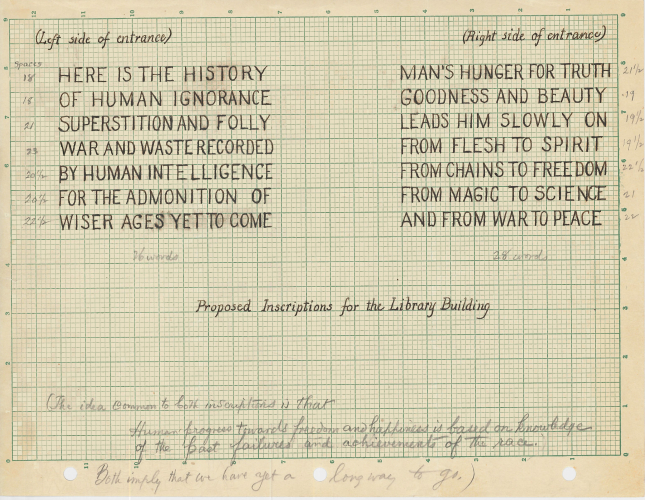 (Left side of entrance)
Spaces
18 HERE IS THE HISTORY
18 OF HUMAN IGNORANCE
21 SUPERSTITION AND FOLLY
23 WAR AND WASTE RECORDED
20½ BY HUMAN INTELLIGENCE
20½ FOR THE ADMONITION OF
22½ WISER AGES YET TO COME
26 words
(Right side of entrance)
MAN'S HUNGER FOR TRUTH 21½
GOODNESS AND BEAUTY 19
LEADS HIM SLOWLY ON 19½
FROM FLESH TO SPIRIT 19½
FROM CHAINS TO FREEDOM 22½
FROM MAGIC TO SCIENCE 21
AND FROM WAR TO PEACE 22
28 words
Proposed Inscriptions for the Library Building
(The idea common to both inscriptions is that
Human progress towards freedom and happiness is based on knowledge
of the past failures and achievements of the race.
Both imply that we have yet a long way to go.)